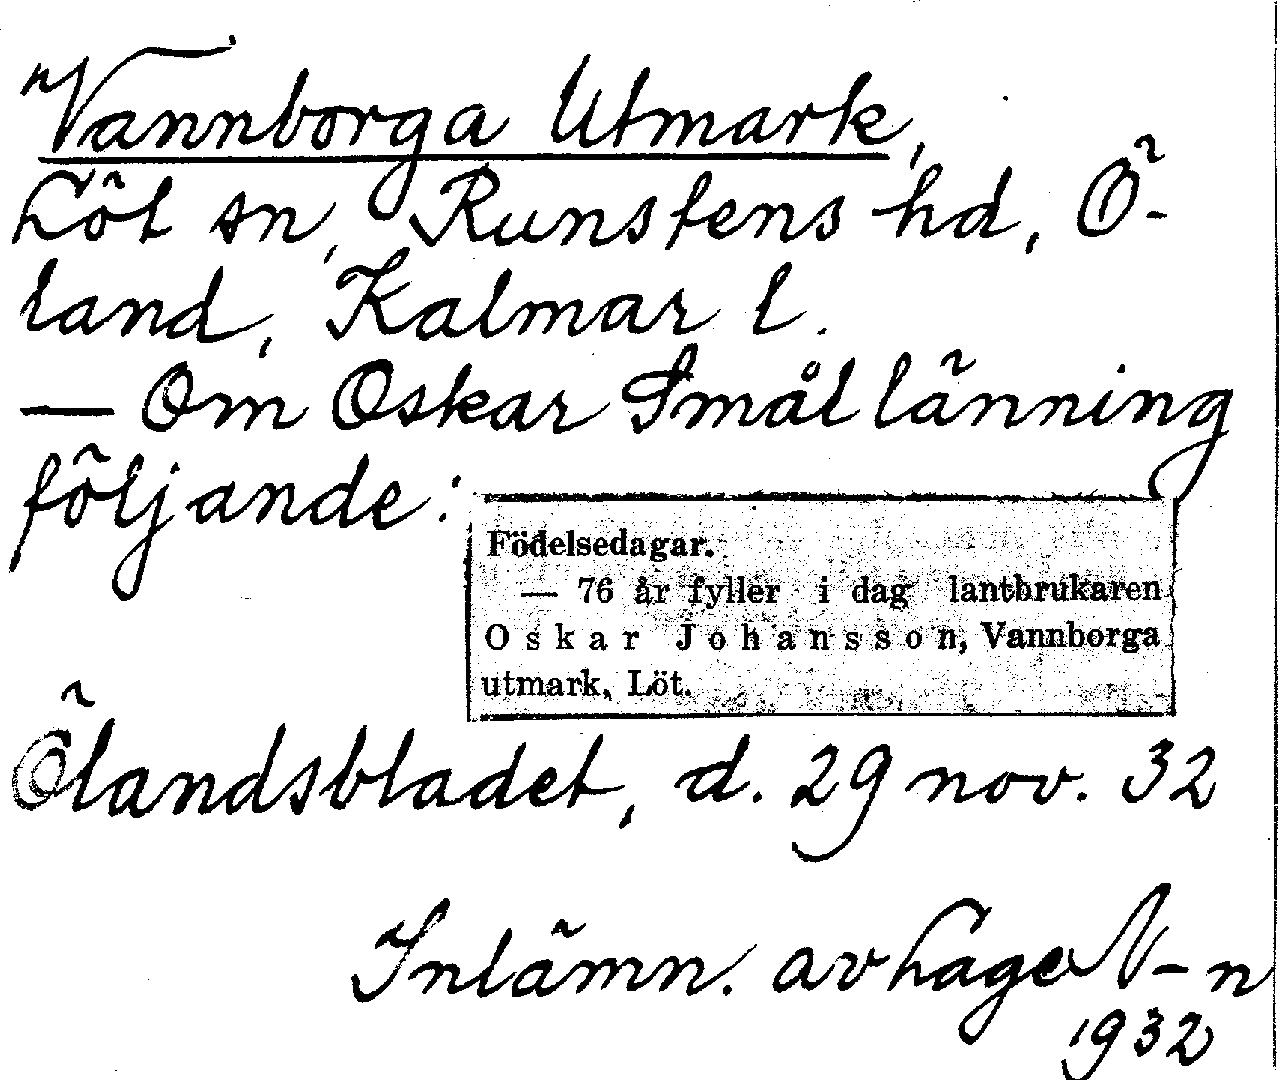 Vannborga Utmark,
Löt sn, Runstens hd, Ö-
land, Kalmar l.
— Om Oskar Smållänning
följande:
Födelsedagar.
— 76 år fyller i dag lantbrukaren
Oskar Johansson, Vannborga
utmark, Löt.
Ölandsbladet, d. 29 nov. 32
Inlämn. av Lage N–n
1932